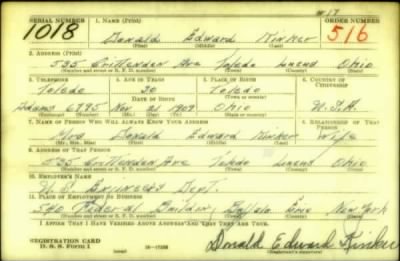 # 17
SERIAL NUMBER 1. NAME (Print) ORDER NUMBER
1018 Donald Edward Kinker 516
(First) (Middle) (Last)
2. ADDRESS (Print)
535 Crittenden Ave Toledo Lucas Ohio
(Number and street or R. F. D. number) (Town) (County) (State)
3. TELEPHONE 4. AGE IN YEARS 5. PLACE OF BIRTH 6. COUNTRY OF CITIZENSHIP
Toledo 30 Toledo
(Town or county)
DATE OF BIRTH
Adams 6795 Nov 1909 Ohio U.S.A.
7. NAME OF PERSON WHO WILL ALWAYS KNOW YOUR ADDRESS 8. RELATIONSHIP OF THAT PERSON
Mrs Donald Edward Kinker Wife
(Mr., Mrs., Miss) (First) (Middle) (Last)
9. ADDRESS OF THAT PERSON
535 Crittenden Ave Toledo Lucas Ohio
(Number and street or R. F. D. number) (Town) (County) (State)
10. EMPLOYER'S NAME
U.S. Engineers Dept.
11. PLACE OF EMPLOYMENT OR BUSINESS
540 Federal Building Buffalo Erie New York
(Number and street or R. F. D. number) (Town) (County) (State)
I AFFIRM THAT I HAVE VERIFIED ABOVE ANSWERS AND THAT THEY ARE TRUE.
REGISTRATION CARD
D. S. S. Form 1 Donald Edward Kinker